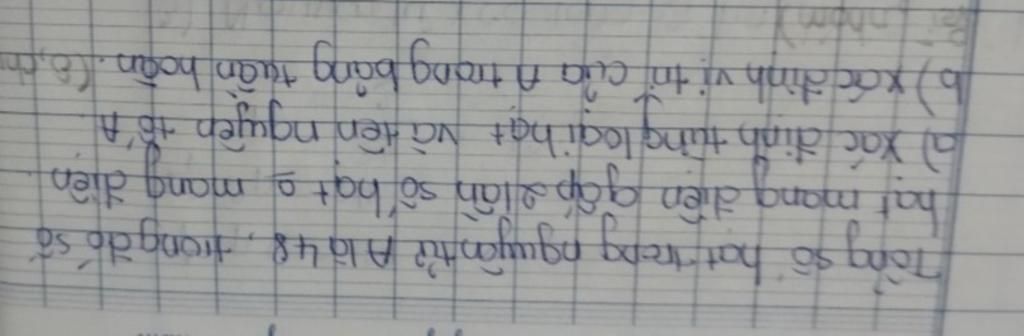 Tổng số hạt trong nguyên tử A là 48, trong đó số
hạt mang điện gấp 2 lần số hạt 0 mang điện
a) Xác định từng loại hạt và tên nguyên tố A
b) Xác định vị trí của A trong bảng tuần hoàn. (ô,
nhóm)